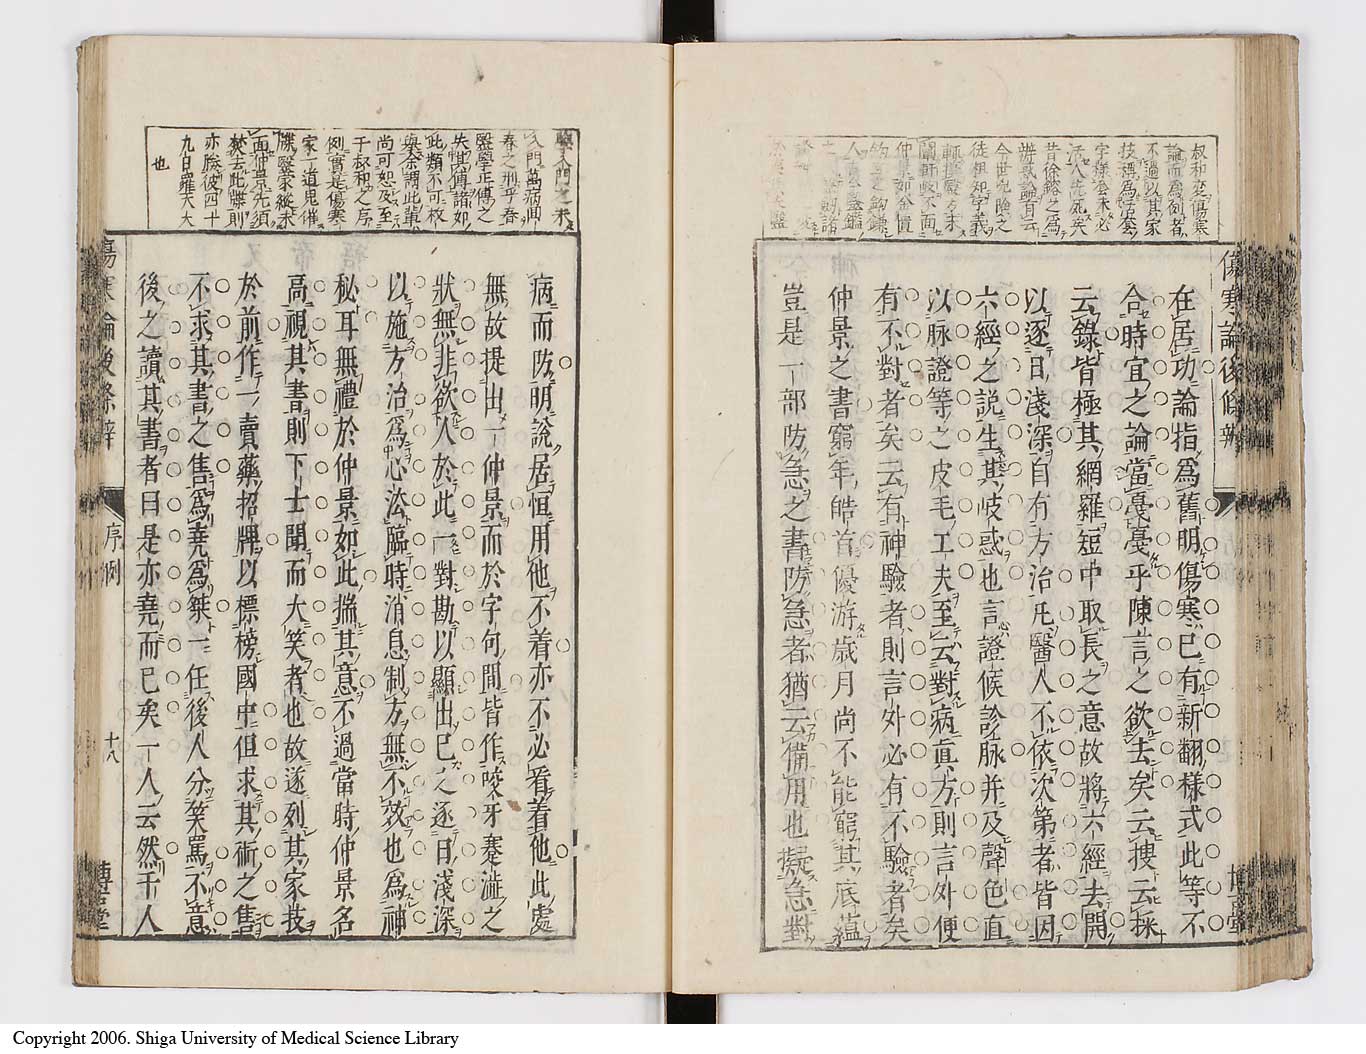 叔和变傷寒
論而為例者
不過以其家
技稱為
字様
活人先死矣
昔徐鎔之為
辨惑論自云
今世兒胎之
徒祖知字義
在居功論指爲舊明傷寒已有新翻樣式此等不
合時宜之論當憂憂乎陳言之欲去矣云搜云採
云錄皆極其網羅短中取長之意故將六經去開
以逐日淺深自有方治凡醫人不依次第者皆因
六經之説生其岐惑也言證候診脉并及聲色直
以脉證等之皮毛工夫至云對病眞方則言外便
有不對者矣云有神驗者則言外必有不驗者矣
仲景之書窮年皓首優游歳月尚不能窮其底蘊
豈是一部防急之書防急者猶云備用也擬急對
傷寒論後條辨
博古堂
醫學入門之來
入門萬病回
春之刑乎春
醫學正傳之
失其傳諸如
此類不可枚
舉余謂此輩
尚可恕及至
于叔和之序
例實是傷寒
家一道見催
牒醫家縱未
面仲景先須
焚去此牒則
亦勝彼四十
九日羅天大
也
病而防明說居恒用他不着亦不必看着他此處
無故提出一仲景而於字句間皆作咬牙蹇澁之
狀無非欲人於此一對勘以顯出已之逐日淺深
以施方治爲心法臨時消息制方無不效也爲神
秘耳無禮於仲景如此揣其意不過當時仲景名
高視其書則下士聞而大笑者也故遂列其家技
於前作一賣藥招牌以標榜國中但求其術之售
不求其書之售爲堯爲桀一任後人分笑罵不意
後之讀其書者曰是亦堯而已矣一人云然千人
傷寒論後條辨
序例
十八
博古堂
Copyright 2006. Shiga University of Medical Science Library